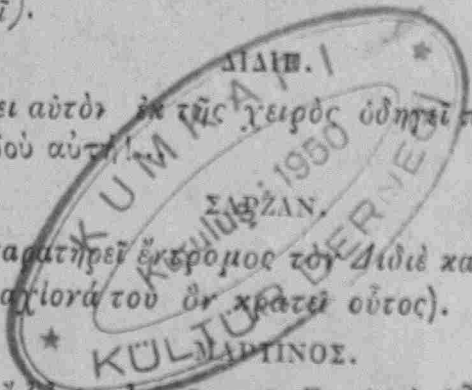 ῖ).
ΔΙΔΙΕ.
ει αὐτὸν ἐκ τῆς χειρὸς ὁδηγεῖ τ
δοὺ αὐτή!...
ΣΑΡΖΑΝ.
αρατηρεῖ ἔντρομος τὸν Διδιὲ κα
αχίονά του ὃν κρατεῖ οὗτος).
ΜΑΡΤΙΝΟΣ.
KUMKAPI
Kuruluş: 1950
KÜLTÜR DERNEĞİ